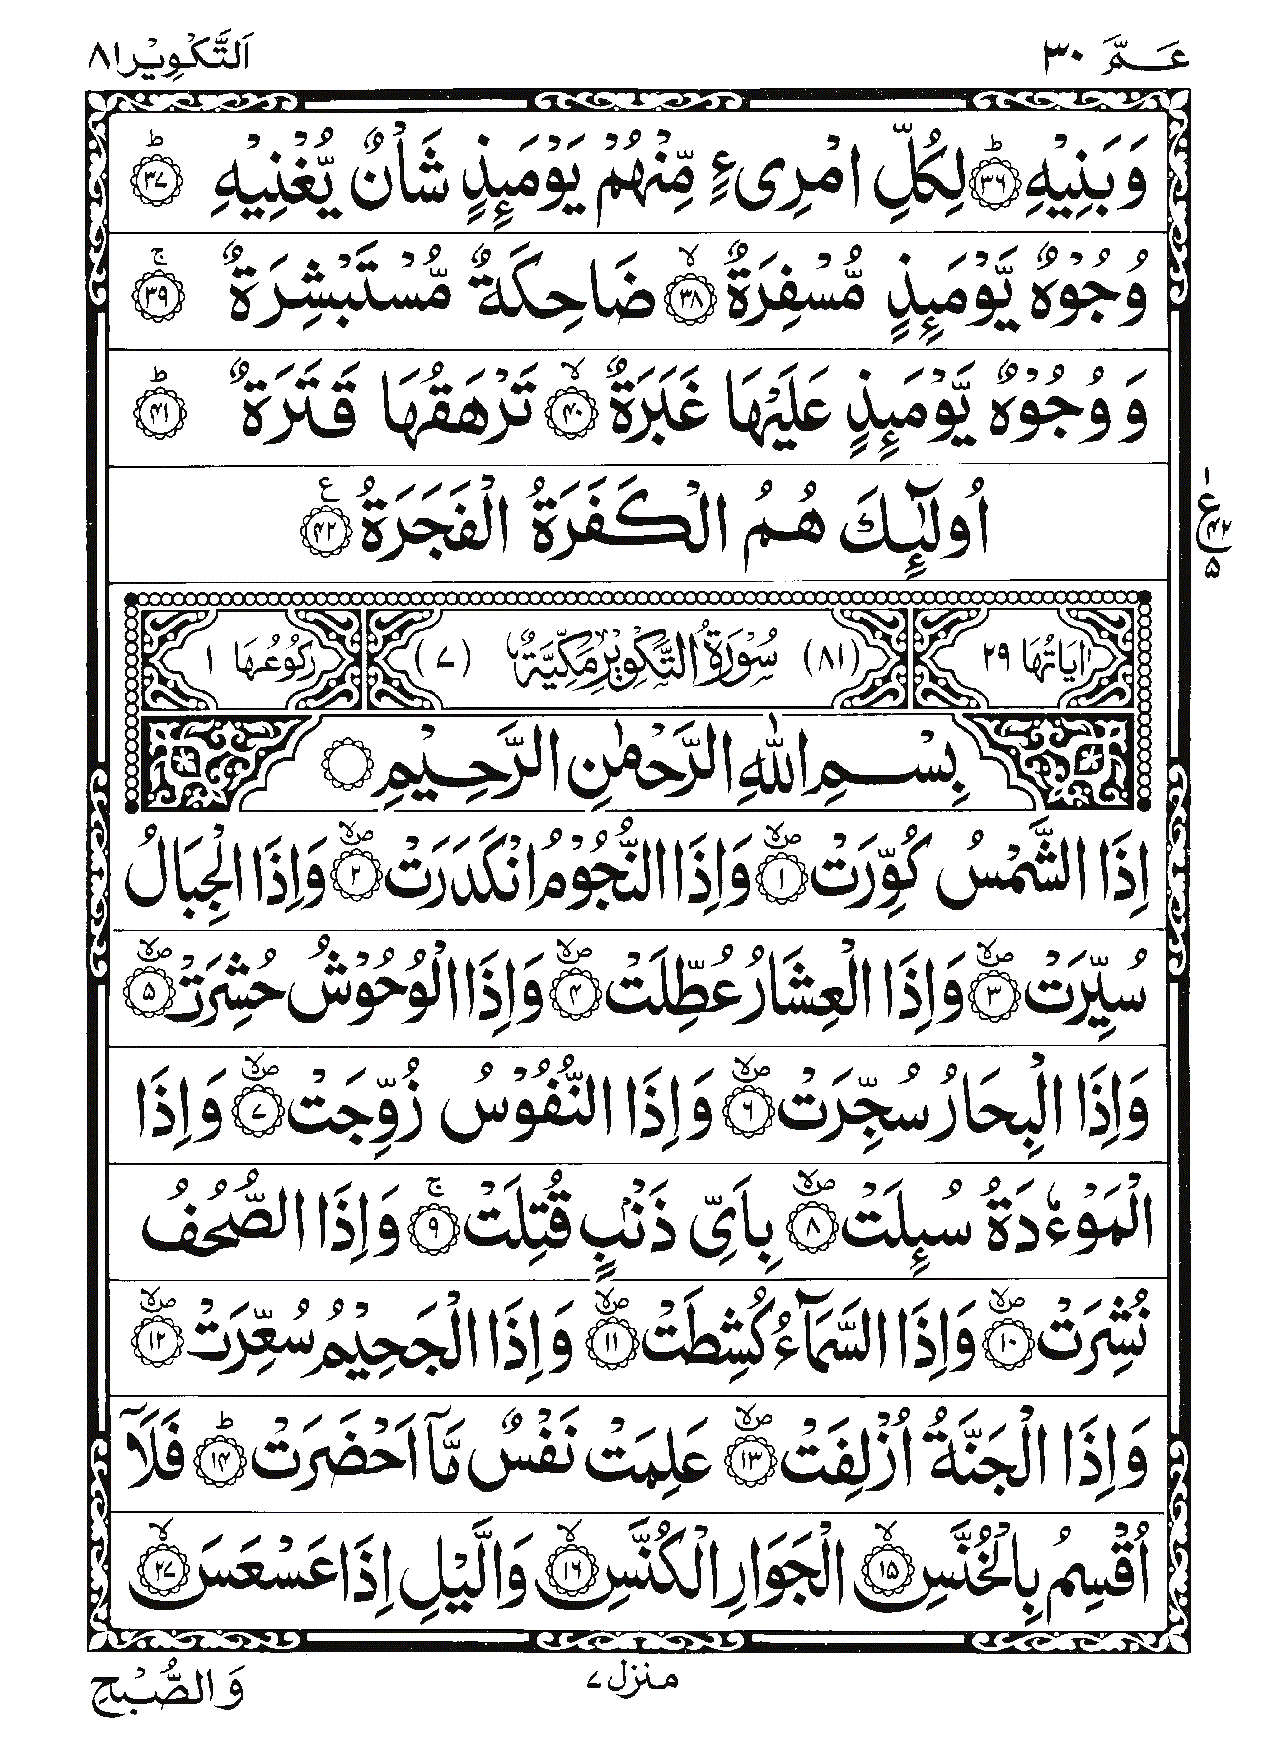 عَـمَّ ٣٠
اَلتَّكْوِيْر ٨١
وَبَنِيْهِ ؕ ﴿۳۶﴾ لِكُلِّ امْرِیءٍ مِّنْهُمْ يَوْمَئِذٍ شَاْنٌ يُّغْنِيْهِ ؕ ﴿۳۷﴾
وُجُوْهٌ يَّوْمَئِذٍ مُّسْفِرَةٌ ۙ ﴿۳۸﴾ ضَاحِكَةٌ مُّسْتَبْشِرَةٌ ۚ ﴿۳۹﴾
وَ وُجُوْهٌ يَّوْمَئِذٍ عَلَيْهَا غَبَرَةٌ ۙ ﴿۴۰﴾ تَرْهَقُهَا قَتَرَةٌ ؕ ﴿۴۱﴾
اُولٰٓئِكَ هُمُ الْكَفَرَةُ الْفَجَرَةُ ع ﴿۴۲﴾
١ ع ۴۲ ۵
اٰيَاتُهَا ٢٩ (٨١) سُوْرَةُ التَّكْوِيْرِ مَكِّيَّةٌ (٧) رُكُوْعُهَا ١
بِسْمِ اللّٰهِ الرَّحْمٰنِ الرَّحِيْمِ
اِذَا الشَّمْسُ كُوِّرَتْ ۪ۙ ﴿۱﴾ وَاِذَا النُّجُوْمُ انْكَدَرَتْ ۪ۙ ﴿۲﴾ وَاِذَا الْجِبَالُ
سُيِّرَتْ ۪ۙ ﴿۳﴾ وَاِذَا الْعِشَارُ عُطِّلَتْ ۪ۙ ﴿۴﴾ وَاِذَا الْوُحُوْشُ حُشِرَتْ ۪ۙ ﴿۵﴾
وَاِذَا الْبِحَارُ سُجِّرَتْ ۪ۙ ﴿۶﴾ وَاِذَا النُّفُوْسُ زُوِّجَتْ ۪ۙ ﴿۷﴾ وَاِذَا
الْمَوْءٗدَةُ سُئِلَتْ ۪ۙ ﴿۸﴾ بِاَیِّ ذَنْۢبٍ قُتِلَتْ ۚ ﴿۹﴾ وَاِذَا الصُّحُفُ
نُشِرَتْ ۪ۙ ﴿۱۰﴾ وَاِذَا السَّمَآءُ كُشِطَتْ ۪ۙ ﴿۱۱﴾ وَاِذَا الْجَحِيْمُ سُعِّرَتْ ۪ۙ ﴿۱۲﴾
وَاِذَا الْجَنَّةُ اُزْلِفَتْ ۪ۙ ﴿۱۳﴾ عَلِمَتْ نَفْسٌ مَّاۤ اَحْضَرَتْ ؕ ﴿۱۴﴾ فَلَاۤ
اُقْسِمُ بِالْخُنَّسِ ۙ ﴿۱۵﴾ الْجَوَارِ الْكُنَّسِ ۙ ﴿۱۶﴾ وَالَّيْلِ اِذَا عَسْعَسَ ۙ ﴿۲۷﴾
منزل ٧
وَالصُّبْحِ